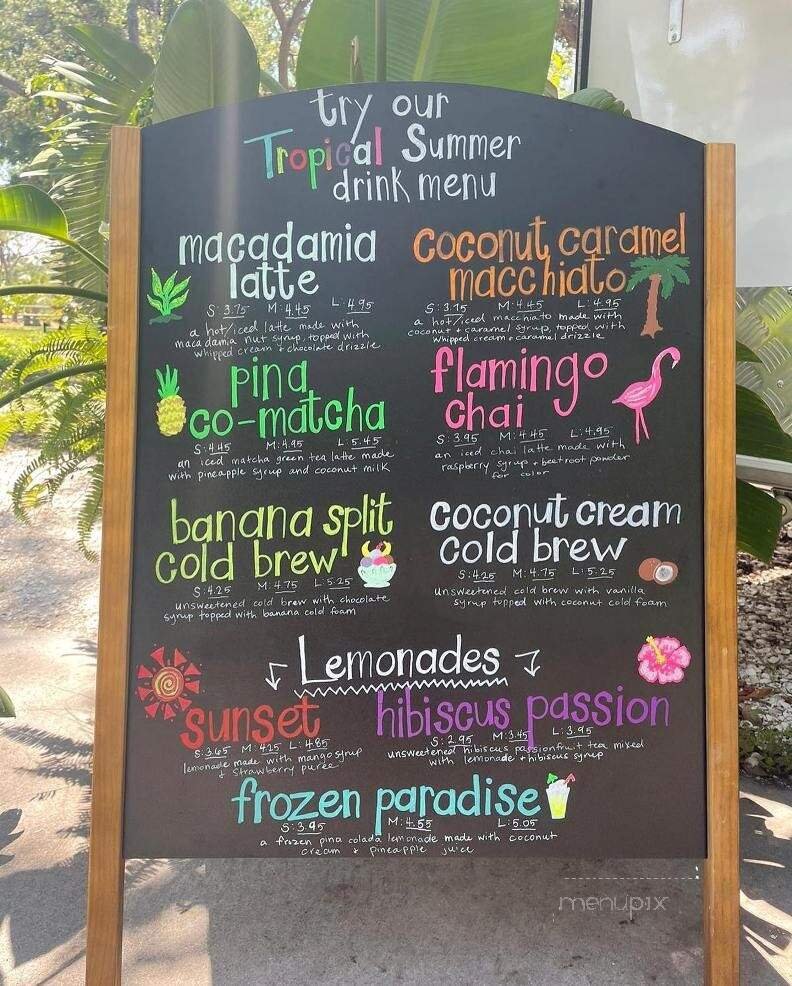 try our
Tropical Summer
drink menu
macadamia
latte
S: 3.75 M: 4.45 L: 4.95
a hot/iced latte made with
macadamia nut syrup, topped with
whipped cream + chocolate drizzle
coconut caramel
macchiato
S: 3.75 M: 4.45 L: 4.95
a hot/iced macchiato made with
coconut + caramel syrup, topped with
whipped cream + caramel drizzle
pina
co-matcha
S: 4.45 M: 4.95 L: 5.45
an iced matcha green tea latte made
with pineapple syrup and coconut milk
flamingo
chai
S: 3.95 M: 4.45 L: 4.95
an iced chai latte made with
raspberry syrup + beetroot powder
for color
banana split
cold brew
S: 4.25 M: 4.75 L: 5.25
unsweetened cold brew with chocolate
syrup topped with banana cold foam
coconut cream
cold brew
S: 4.25 M: 4.75 L: 5.25
unsweetened cold brew with vanilla
syrup topped with coconut cold foam
Lemonades
sunset
S: 3.65 M: 4.25 L: 4.85
lemonade made with mango syrup
+ strawberry puree
hibiscus passion
S: 2.95 M: 3.45 L: 3.95
unsweetened hibiscus passionfruit tea mixed
with lemonade + hibiscus syrup
frozen paradise
S: 3.95 M: 4.55 L: 5.05
a frozen pina colada lemonade made with coconut
cream + pineapple juice
menupix